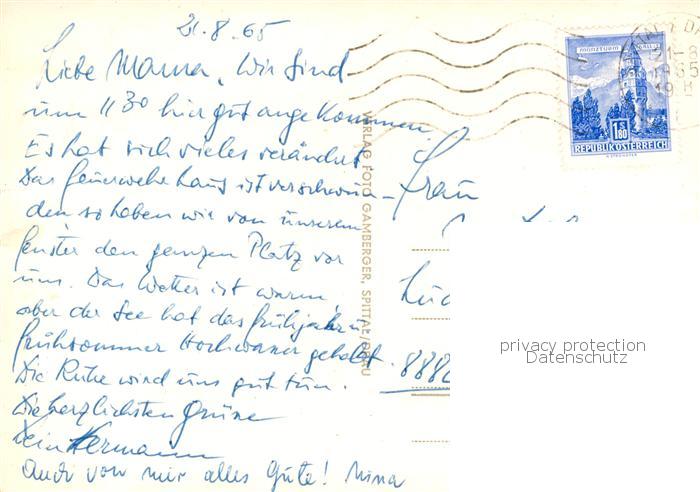 21.8.65
Liebe Mama, Wir sind
um 11 30 hier gut angekommen.
Es hat sich vieles verändert
Das Feuerwehrhaus ist verschwun-
den so haben wir von unserem
Fenster den ganzen Platz vor
uns. Das Wetter ist warm,
aber der See hat das Frühjahr u
Frühsommer Hochwasser gehabt.
Die Ruhe wird uns gut tun.
Die herzlichsten Grüsse
Dein Hermann
Auch von mir alles Gute! Mina
VERLAG FOTO GAMBERGER, SPITTAL/DRAU
MÜNZTURM HALL I. T.
1.80
REPUBLIK ÖSTERREICH
1965
Frau
888
privacy protection
Datenschutz